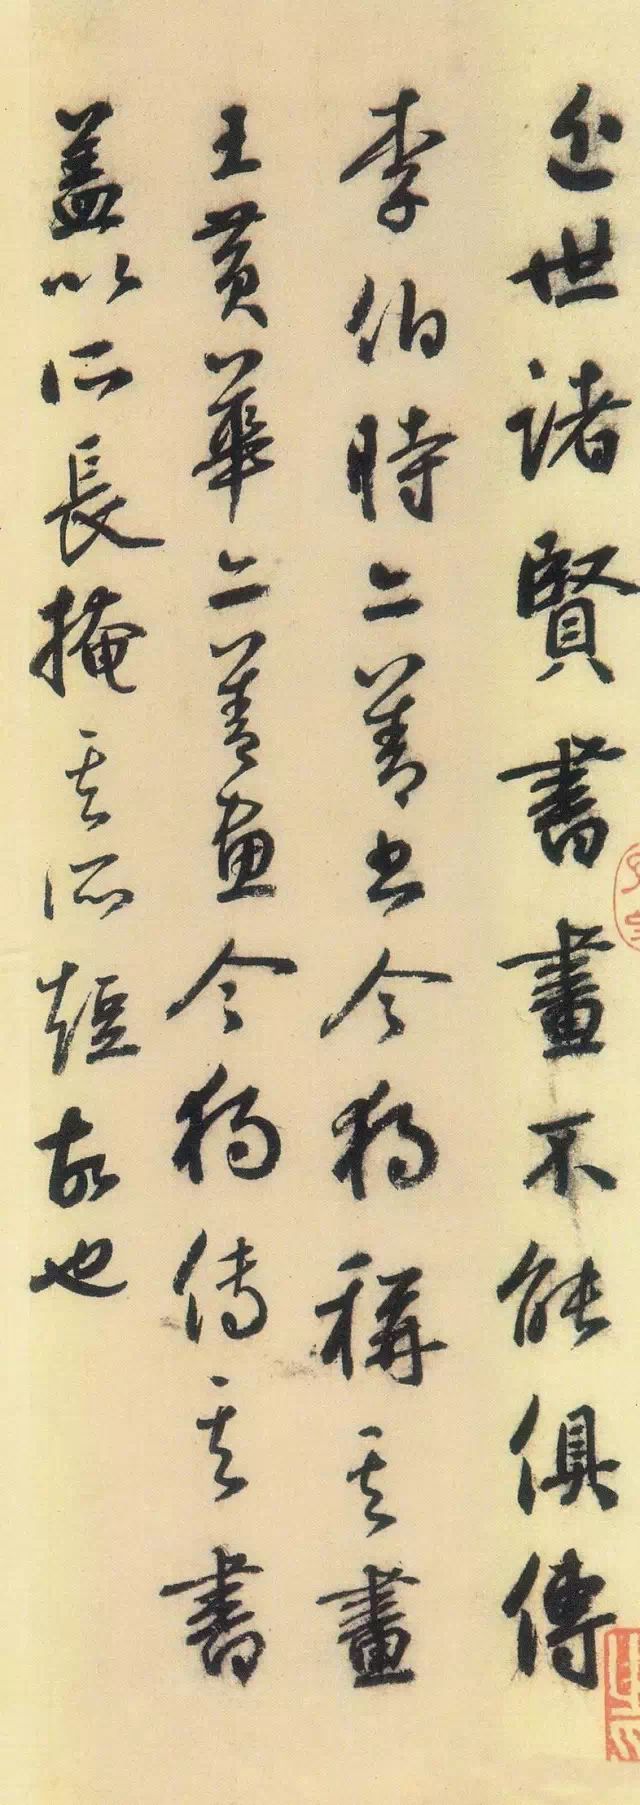 近世諸賢書畫不能俱傳
李伯時亦善书今獨稱其畫
王黃華亦善画今獨傳其書
蓋以所長掩其所短故也